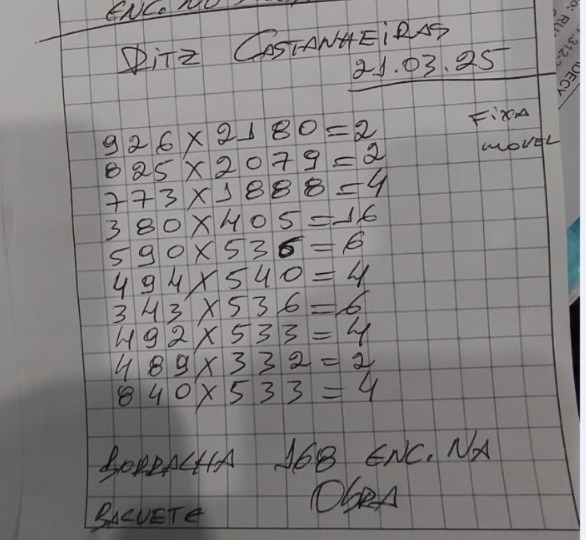 ENC. NO
DITZ CASTANHEIRAS
21.03.25
FIXA
MOVEL
926X2180=2
825X2079=2
773X1888=4
380X405=16
590X536=6
494X540=4
343X536=6
492X533=4
489X332=2
840X533=4
BORRACHA 168 ENC. NA
OBRA
BACUETE